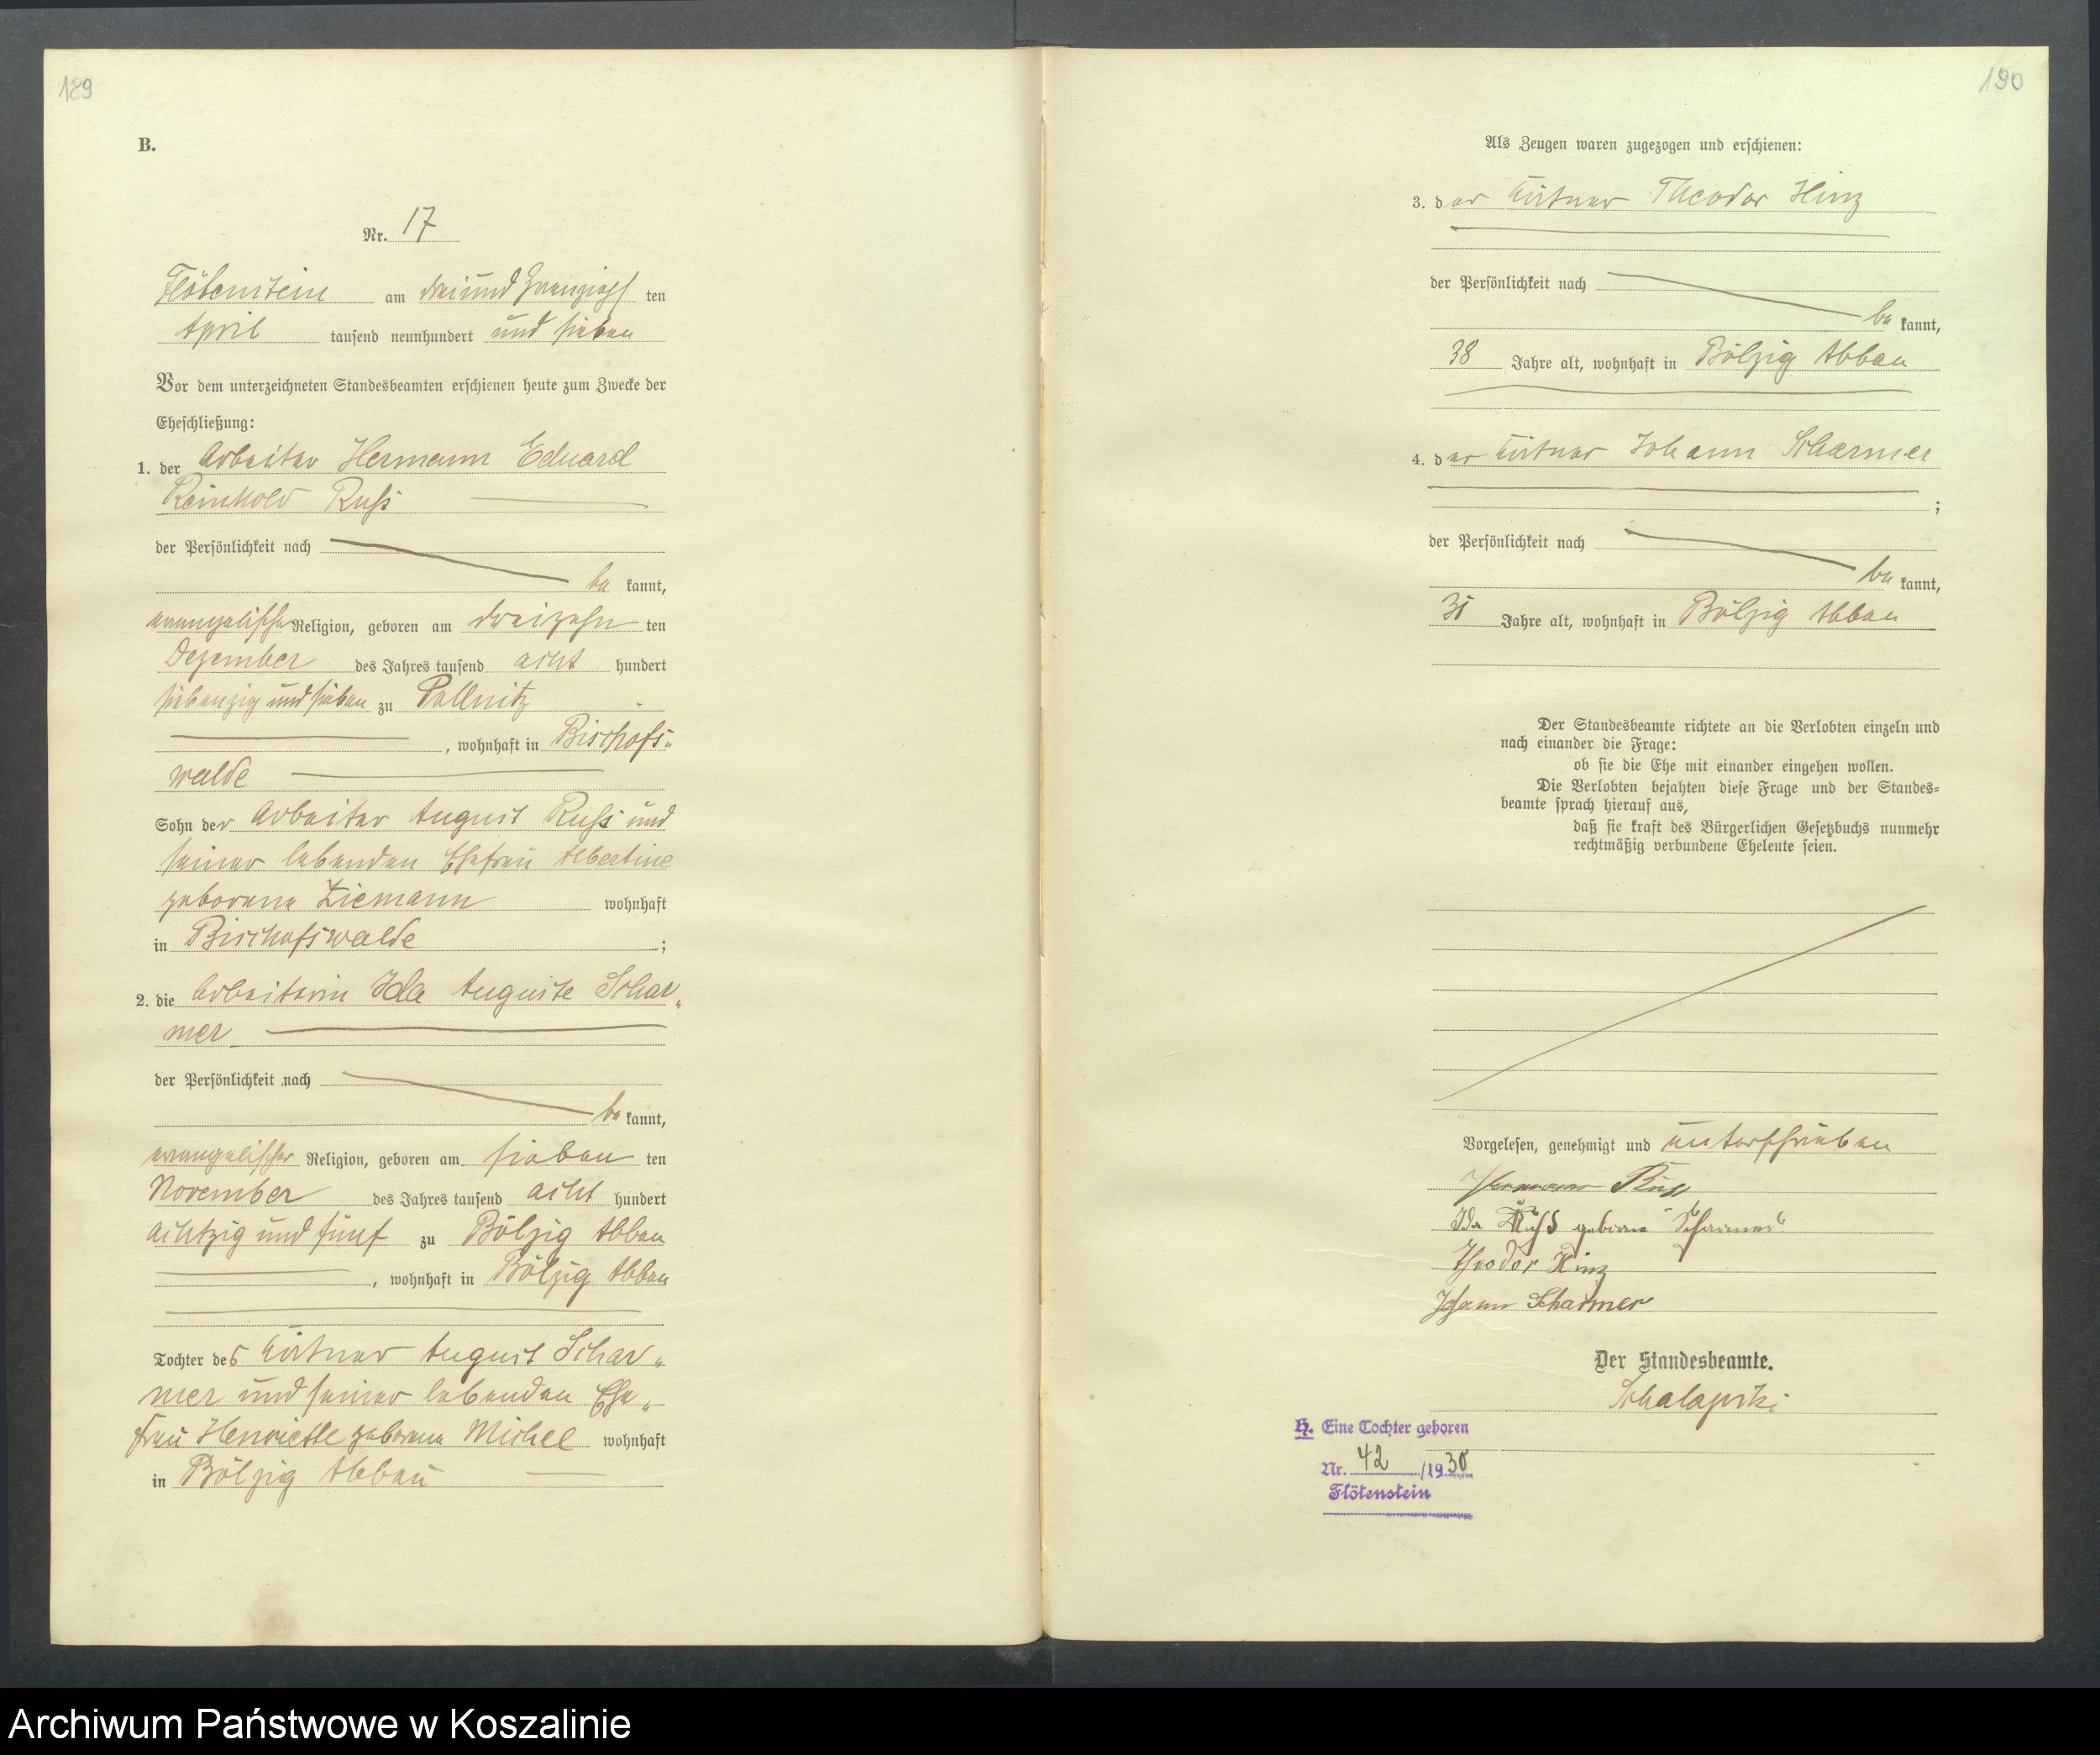 189
B.
Nr. 17
Flötenstein am dreiundzwanzigsten
April tausend neunhundert und sieben
Vor dem unterzeichneten Standesbeamten erschienen heute zum Zwecke der
Eheschließung:
1. der Arbeiter Hermann Eduard
Reinhold Ruß
der Persönlichkeit nach
be kannt,
evangelischer Religion, geboren am dreizehn ten
Dezember des Jahres tausend acht hundert
siebenzig und sieben zu Pollnitz
, wohnhaft in Bischofs-
walde
Sohn der Arbeiter August Ruß und
seiner lebenden Ehefrau Albertine
geborene Ziemann wohnhaft
in Bischofswalde ;
2. die Arbeiterin Ida Auguste Schar-
mer
der Persönlichkeit nach
be kannt,
evangelischer Religion, geboren am sieben ten
November des Jahres tausend acht hundert
achtzig und fünf zu Bölzig Abbau
, wohnhaft in Bölzig Abbau
Tochter des August Schar-
mer und seiner lebenden Ehe-
frau Henriette geborene Michel wohnhaft
in Bölzig Abbau
190
Als Zeugen waren zugezogen und erschienen:
3. der Theodor Hinz
der Persönlichkeit nach
be kannt,
38 Jahre alt, wohnhaft in Bölzig Abbau
4. der Johann Scharmer
;
der Persönlichkeit nach
be kannt,
Jahre alt, wohnhaft in Bölzig Abbau
Der Standesbeamte richtete an die Verlobten einzeln und
nach einander die Frage:
ob sie die Ehe mit einander eingehen wollen.
Die Verlobten bejahten diese Frage und der Standes-
beamte sprach hierauf aus,
daß sie kraft des Bürgerlichen Gesetzbuchs nunmehr
rechtmäßig verbundene Eheleute seien.
Vorgelesen, genehmigt und unterschrieben
Hermann Ruß
Ida Ruß geborene Scharmer
Theodor Hinz
Johann Scharmer
Der Standesbeamte.
H. Eine Tochter geboren
Nr. 42 /1930
Flötenstein
Archiwum Państwowe w Koszalinie